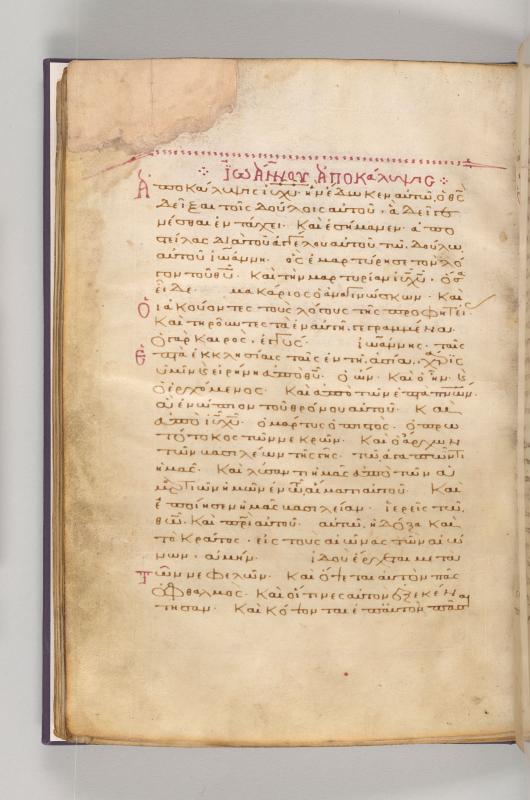 Ἰωάννου Ἀποκάλυψις
Ἀποκάλυψις ιυ χυ· ἣν ἔδωκεν αὐτῷ, ὁ θς
δεῖξαι τοῖς δούλοις αὐτοῦ, ἃ δεῖ γε
νέσθαι ἐν τάχει. Καὶ ἐσήμανεν ἀπο
στείλας διὰ τοῦ ἀγγέλου αὐτοῦ τῷ δούλῳ
αὐτοῦ ἰωάννη· ὃς ἐμαρτύρησε τὸν λό
γον τοῦ θυ. Καὶ τὴν μαρτυρίαν ιυ χυ. ὅσα
εἶδε. μακάριος ὁ ἀναγινώσκων. Καὶ
οἱ ἀκούοντες τοὺς λόγους τῆς προφητεί
Καὶ τηροῦντες τὰ ἐν αὐτῇ γεγραμμένα.
ὁ γὰρ καιρος, ἐγγύς. ἰωάννης, ταῖς
ἑπτὰ ἐκκλησίαις ταῖς ἐν τῇ ἀσίᾳ, χάρις
ὑμῖν καὶ εἰρήνη ἀπὸ θυ. ὁ ὤν. Καὶ ὁ ἦν. καὶ
ὁ ἐρχόμενος. Καὶ ἀπὸ τῶν ἑπτὰ πνων.
ἃ ἐνώπιον τοῦ θρόνου αὐτοῦ. Καὶ
ἀπὸ ιυ χυ. ὁ μάρτυς ὁ πιστός. ὁ πρω
τότοκος τῶν νεκρῶν. Καὶ ὁ ἄρχων
τῶν βασιλείων τῆς γῆς. τῷ ἀγαπῶντι
ἡμᾶς. Καὶ λύσαντι ἡμᾶς ἀπὸ τῶν ἁ
μαρτιῶν ἡμῶν ἐν τῷ αἵματι αὐτοῦ. Καὶ
ἐποίησεν ἡμᾶς βασιλείαν. ἱερεῖς τῷ
θω. Καὶ πρι αὐτοῦ. αὐτῷ, ἡ δόξα Καὶ
τὸ κράτος. εἰς τοὺς αἰῶνας τῶν αἰώ
νων. ἀμήν. ἰδοὺ ἔρχεται μετὰ
τῶν νεφελῶν. Καὶ ὄψεται αὐτὸν πᾶς
ὀφθαλμος. Καὶ οἵτινες αὐτον ἐξεκέν
τησαν. Καὶ κόψονται ἐπ αὐτὸν πᾶσαι